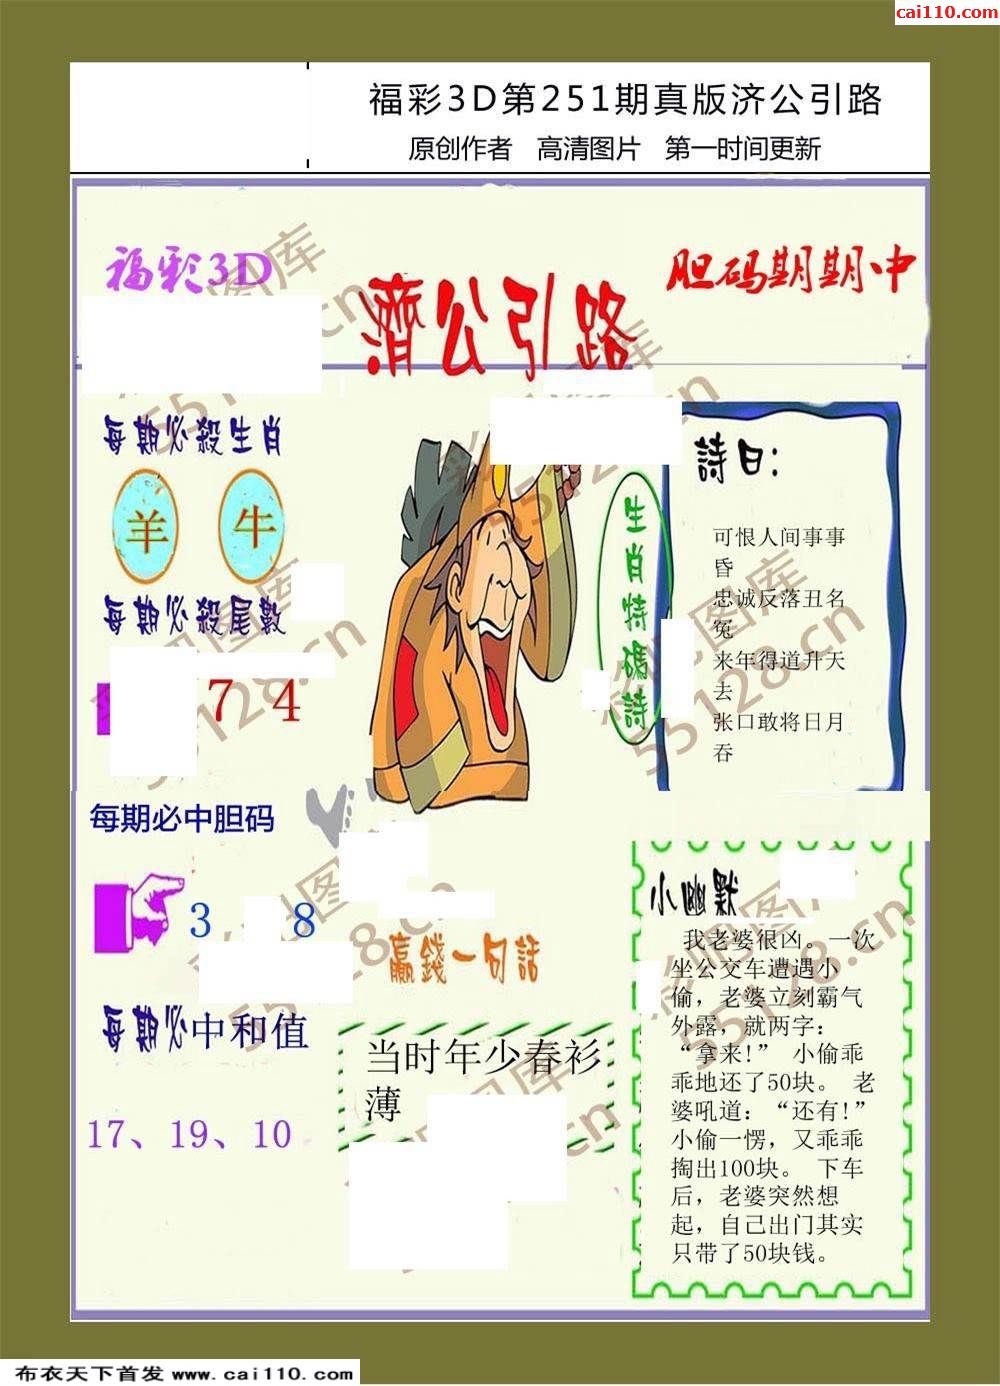 cai110.com
福彩3D第251期真版济公引路
原创作者 高清图片 第一时间更新
福彩3D
胆码期期中
濟公引路
每期必殺生肖
羊 牛
每期必殺尾數
7 4
每期必中胆码
3 8
每期必中和值
17、19、10
生肖特碼詩
詩曰：
可恨人间事事
昏
忠诚反落丑名
冤
来年得道升天
去
张口敢将日月
吞
贏錢一句話
当时年少春衫
薄
小幽默
我老婆很凶。一次
坐公交车遭遇小
偷，老婆立刻霸气
外露，就两字：
“拿来!” 小偷乖
乖地还了50块。 老
婆吼道：“还有!”
小偷一愣，又乖乖
掏出100块。 下车
后，老婆突然想
起，自己出门其实
只带了50块钱。
彩吧图库
55128.cn
布衣天下首发 www.cai110.com